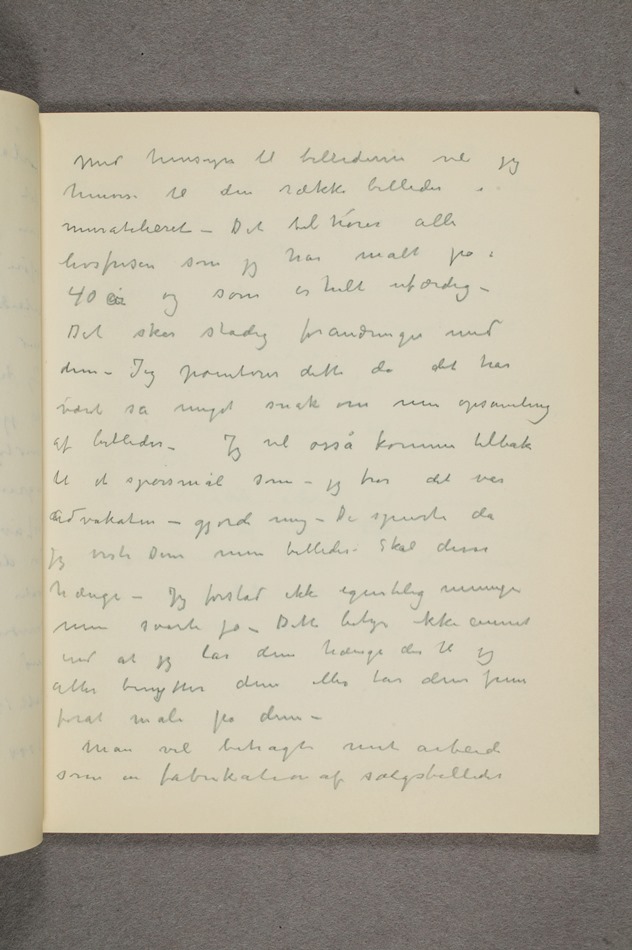 Med hensyn til billederne vil jeg
henvise til den række billeder i
muratelieret – Det tilhører alle
livsfrisen som jeg har malt på i
40 år og som er helt ufærdig –
Det sker stadig forandringer med
dem – Jeg pointerer dette da det har
vært så meget snak om min opsamling
af billeder – Jeg vil også komme tilbake
til et spørsmål som – jeg tror det var
advokaten – gjorde mig – De spurte da
jeg viste Dem mine billeder. Skal disse
hænge – Jeg forstod ikke egentlig meningen
men svarte ja – Dette betyr ikke annet
end at jeg lar dem hænge der til jeg
atter benytter dem eller tar dem frem
forat male på dem –
Man vil betragte mit arbeide
som en fabrikation af salgsbilleder